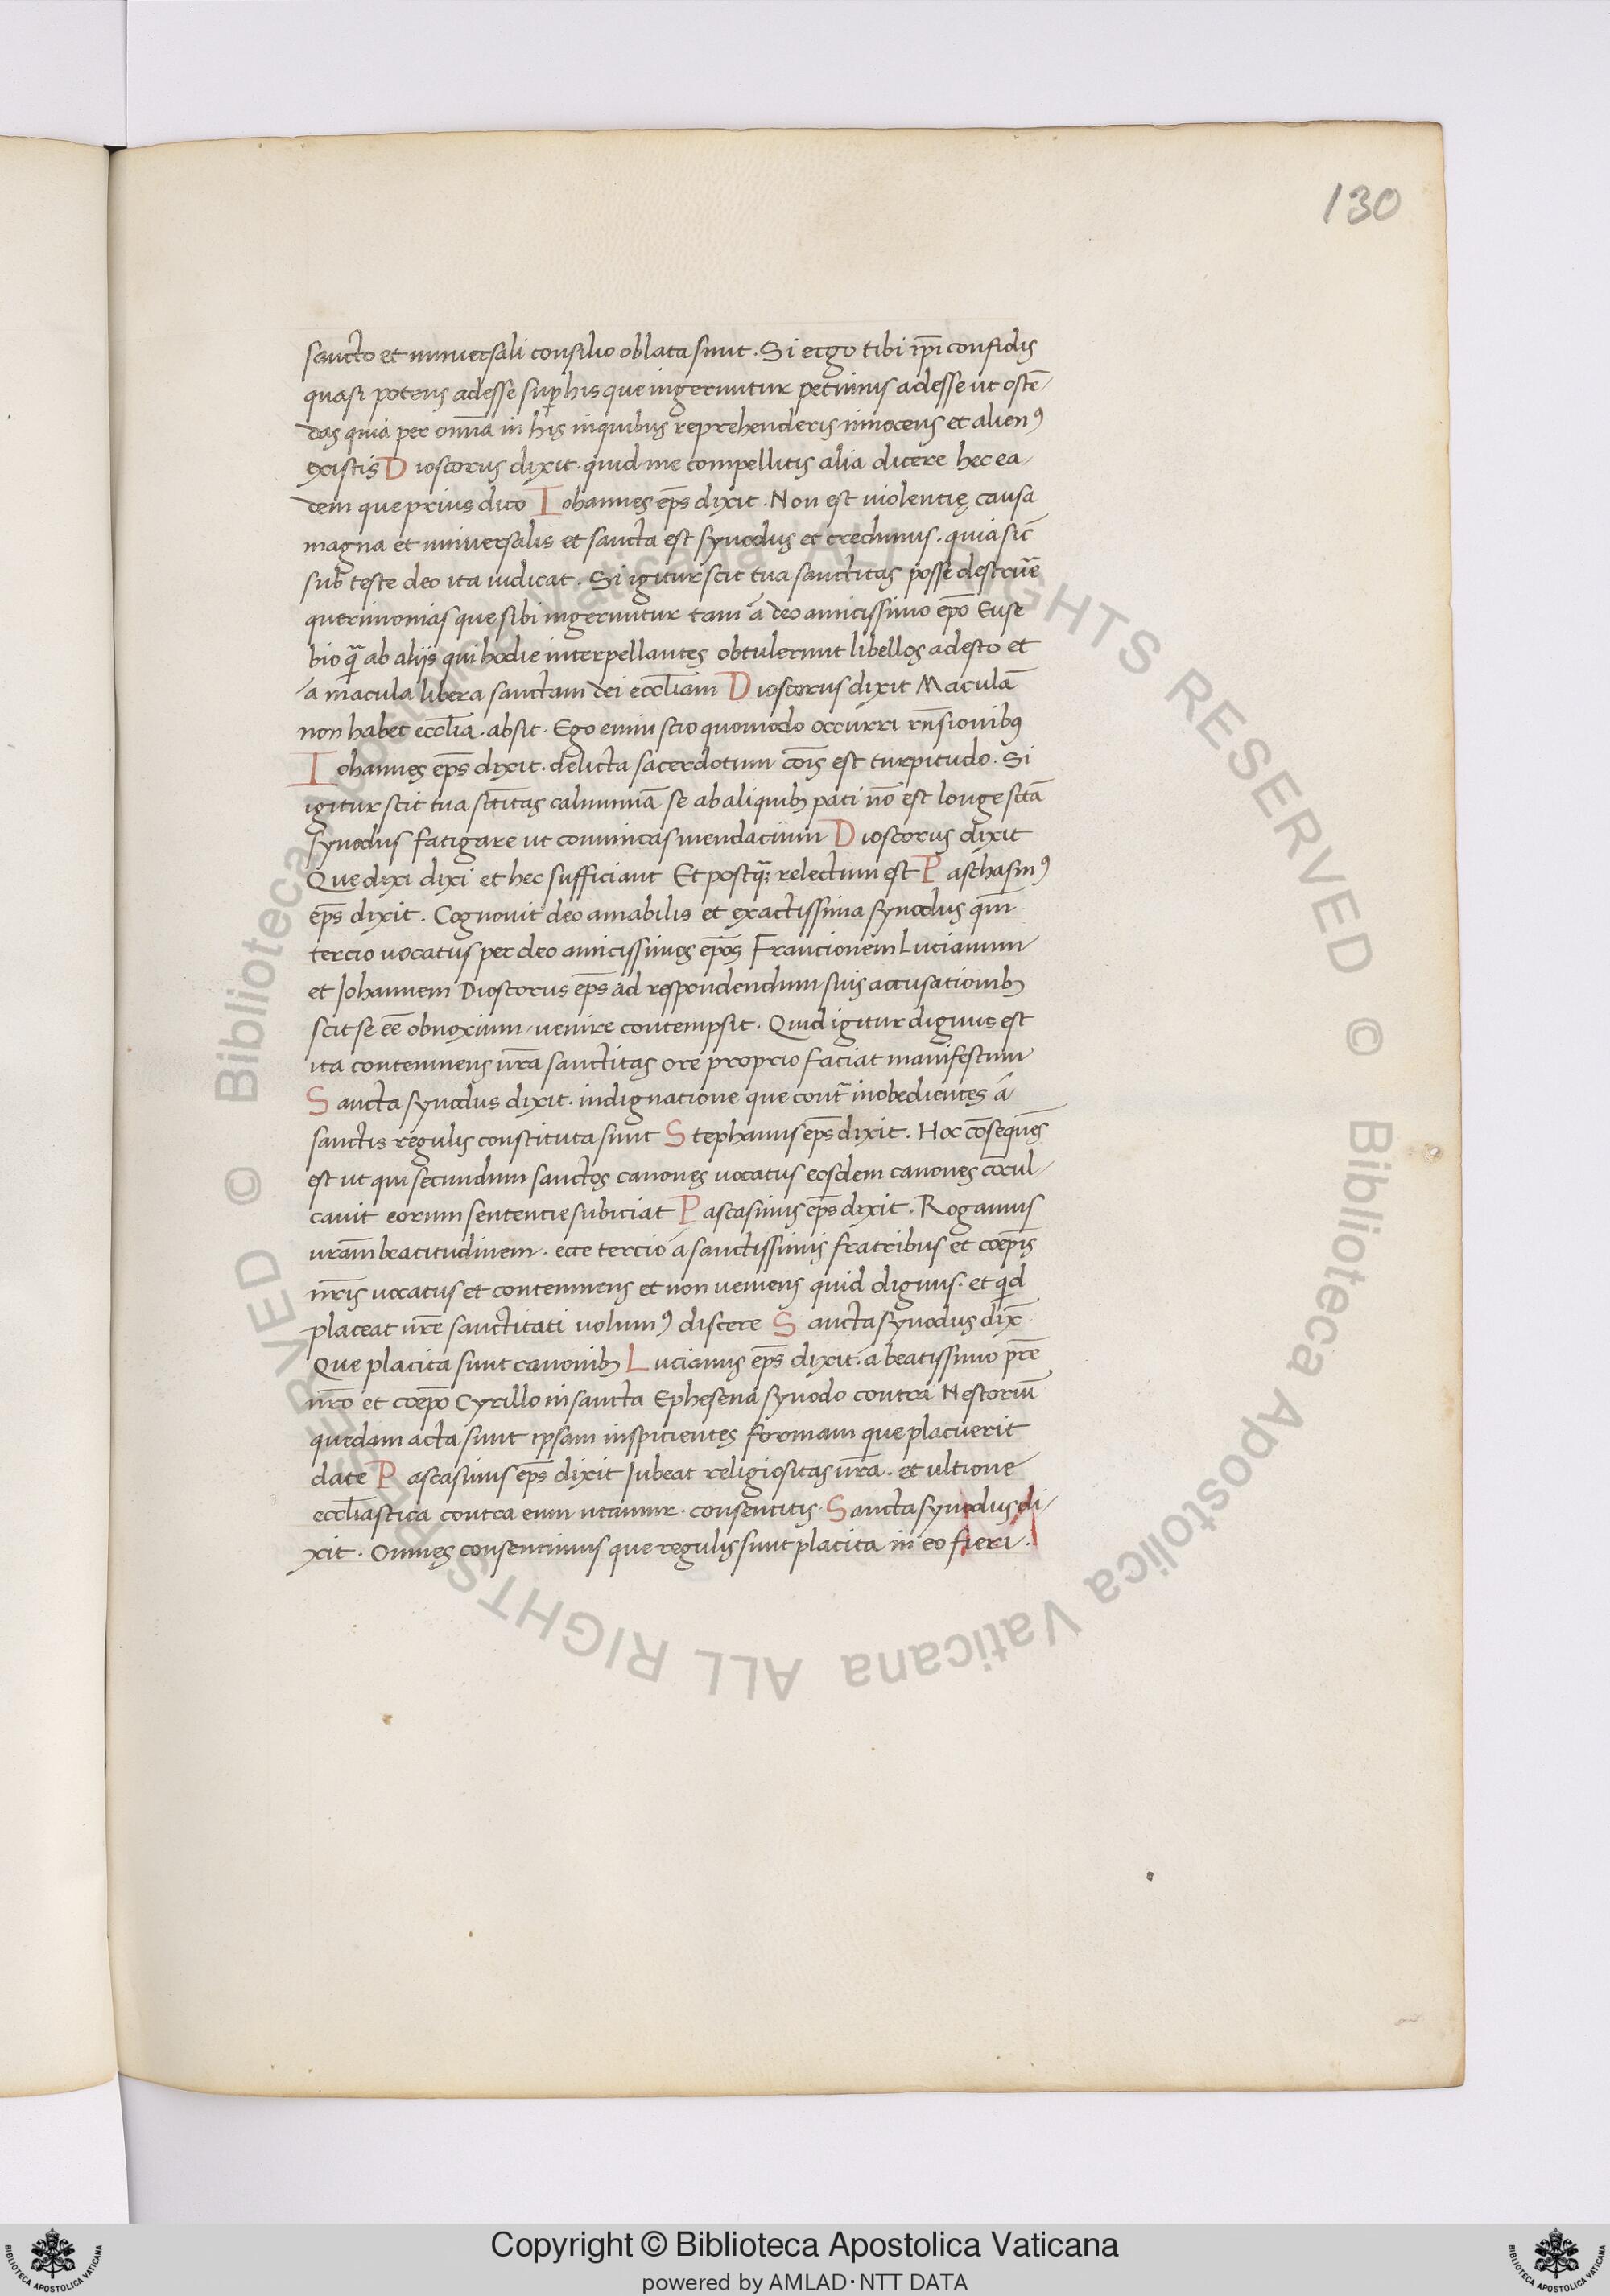 130
sancto et uniuersali consilio oblata sunt. Si ergo tibi ip̄i confidis
quasi potens adesse sup̱ his que ingeruntur petimus adesse ut ostē-
das quia per om̄ia in his in quibus reprehenderis innocens et alienꝰ
existis Dioscorus dixit. quid me compellitis alia dicere hec ea-
dem que prius dico Iohannes ep̄s dixit. Non est uiolentię causa
magna et uniuersalis et sancta est synodus et credimus. quia sic̄
sub teste deo ita iudicat. Si igitur scit tua sanctitas posse
querimonias que sibi ingeruntur tam á deo amicissimo ep̄o Euse
bio q̄ ab alijs qui hodie interpellantes obtulerunt libellos adesto et
a macula libera sanctam dei eccl̄iam Dioscorus dixit Maculā
non habet eccl̄ia. absit. Ego enim scio quomodo occurri
Iohannes ep̄s dixit. delicta sacerdotum cōis est turpitudo. Si
igitur scit tua sc̄titas calumniā se ab aliquibꝫ pati nō est longe sc̄tā
synodus fatigare ut conuincas mendacium Dioscorus dixit
Que dixi dixi et hec sufficiant Et postq̄ꝫ relectum est Paschasinꝰ
ep̄s dixit. Cognouit deo amabilis et exactissima synodus qm̄
tercio uocatus per deo amicissimos ep̄os Francionem Lucianum
et Johannem Dioscorus ep̄s ad respondendum suis accusationibꝫ
scit se eē obnoxium uenire contempsit. Quid igitur dignus est
ita contemnens ur̄a sanctitas ore proprio faciat manifestum
Sancta synodus dixit. indignatione que cont̄ inobedientes á
sanctis regulis constituta sunt Stephanus ep̄s dixit. Hoc cōsequēs
est ut qui secundum sanctos canones uocatus eosdem canones cōcul-
cauit eorum sentencie subiciat Pascasinus ep̄s dixit. Rogamus
ur̄am beatitudinem. ecce tercio á sanctissimis fratribus et coep̄is
nr̄is uocatus et contemnens et non ueniens quid dignus. et qd
placeat ur̄e sanctitati uolumꝰ discere Sancta synodus dix̄
Que placita sunt canonibꝫ Lucianus ep̄s dixit. a beatissimo pr̄e
nr̄o et coep̄o Cyrillo in sancta Ephesena synodo contra Nestoriū
quedam acta sunt ipsam inspicientes formam que placuerit
date Pascasinus ep̄s dixit Jubeat religiositas ur̄a. et ultione
eccl̄iastica contra eum utamur. consentitis. Sancta synodus di-
xit. Omnes consentimus que regulis sunt placita in eo fieri.
© Biblioteca Apostolica Vaticana ALL RIGHTS RESERVED © Biblioteca Apostolica Vaticana ALL RIGHTS RESERVED
BIBLIOTECA APOSTOLICA VATICANA
Copyright © Biblioteca Apostolica Vaticana
powered by AMLAD·NTT DATA
BIBLIOTECA APOSTOLICA VATICANA